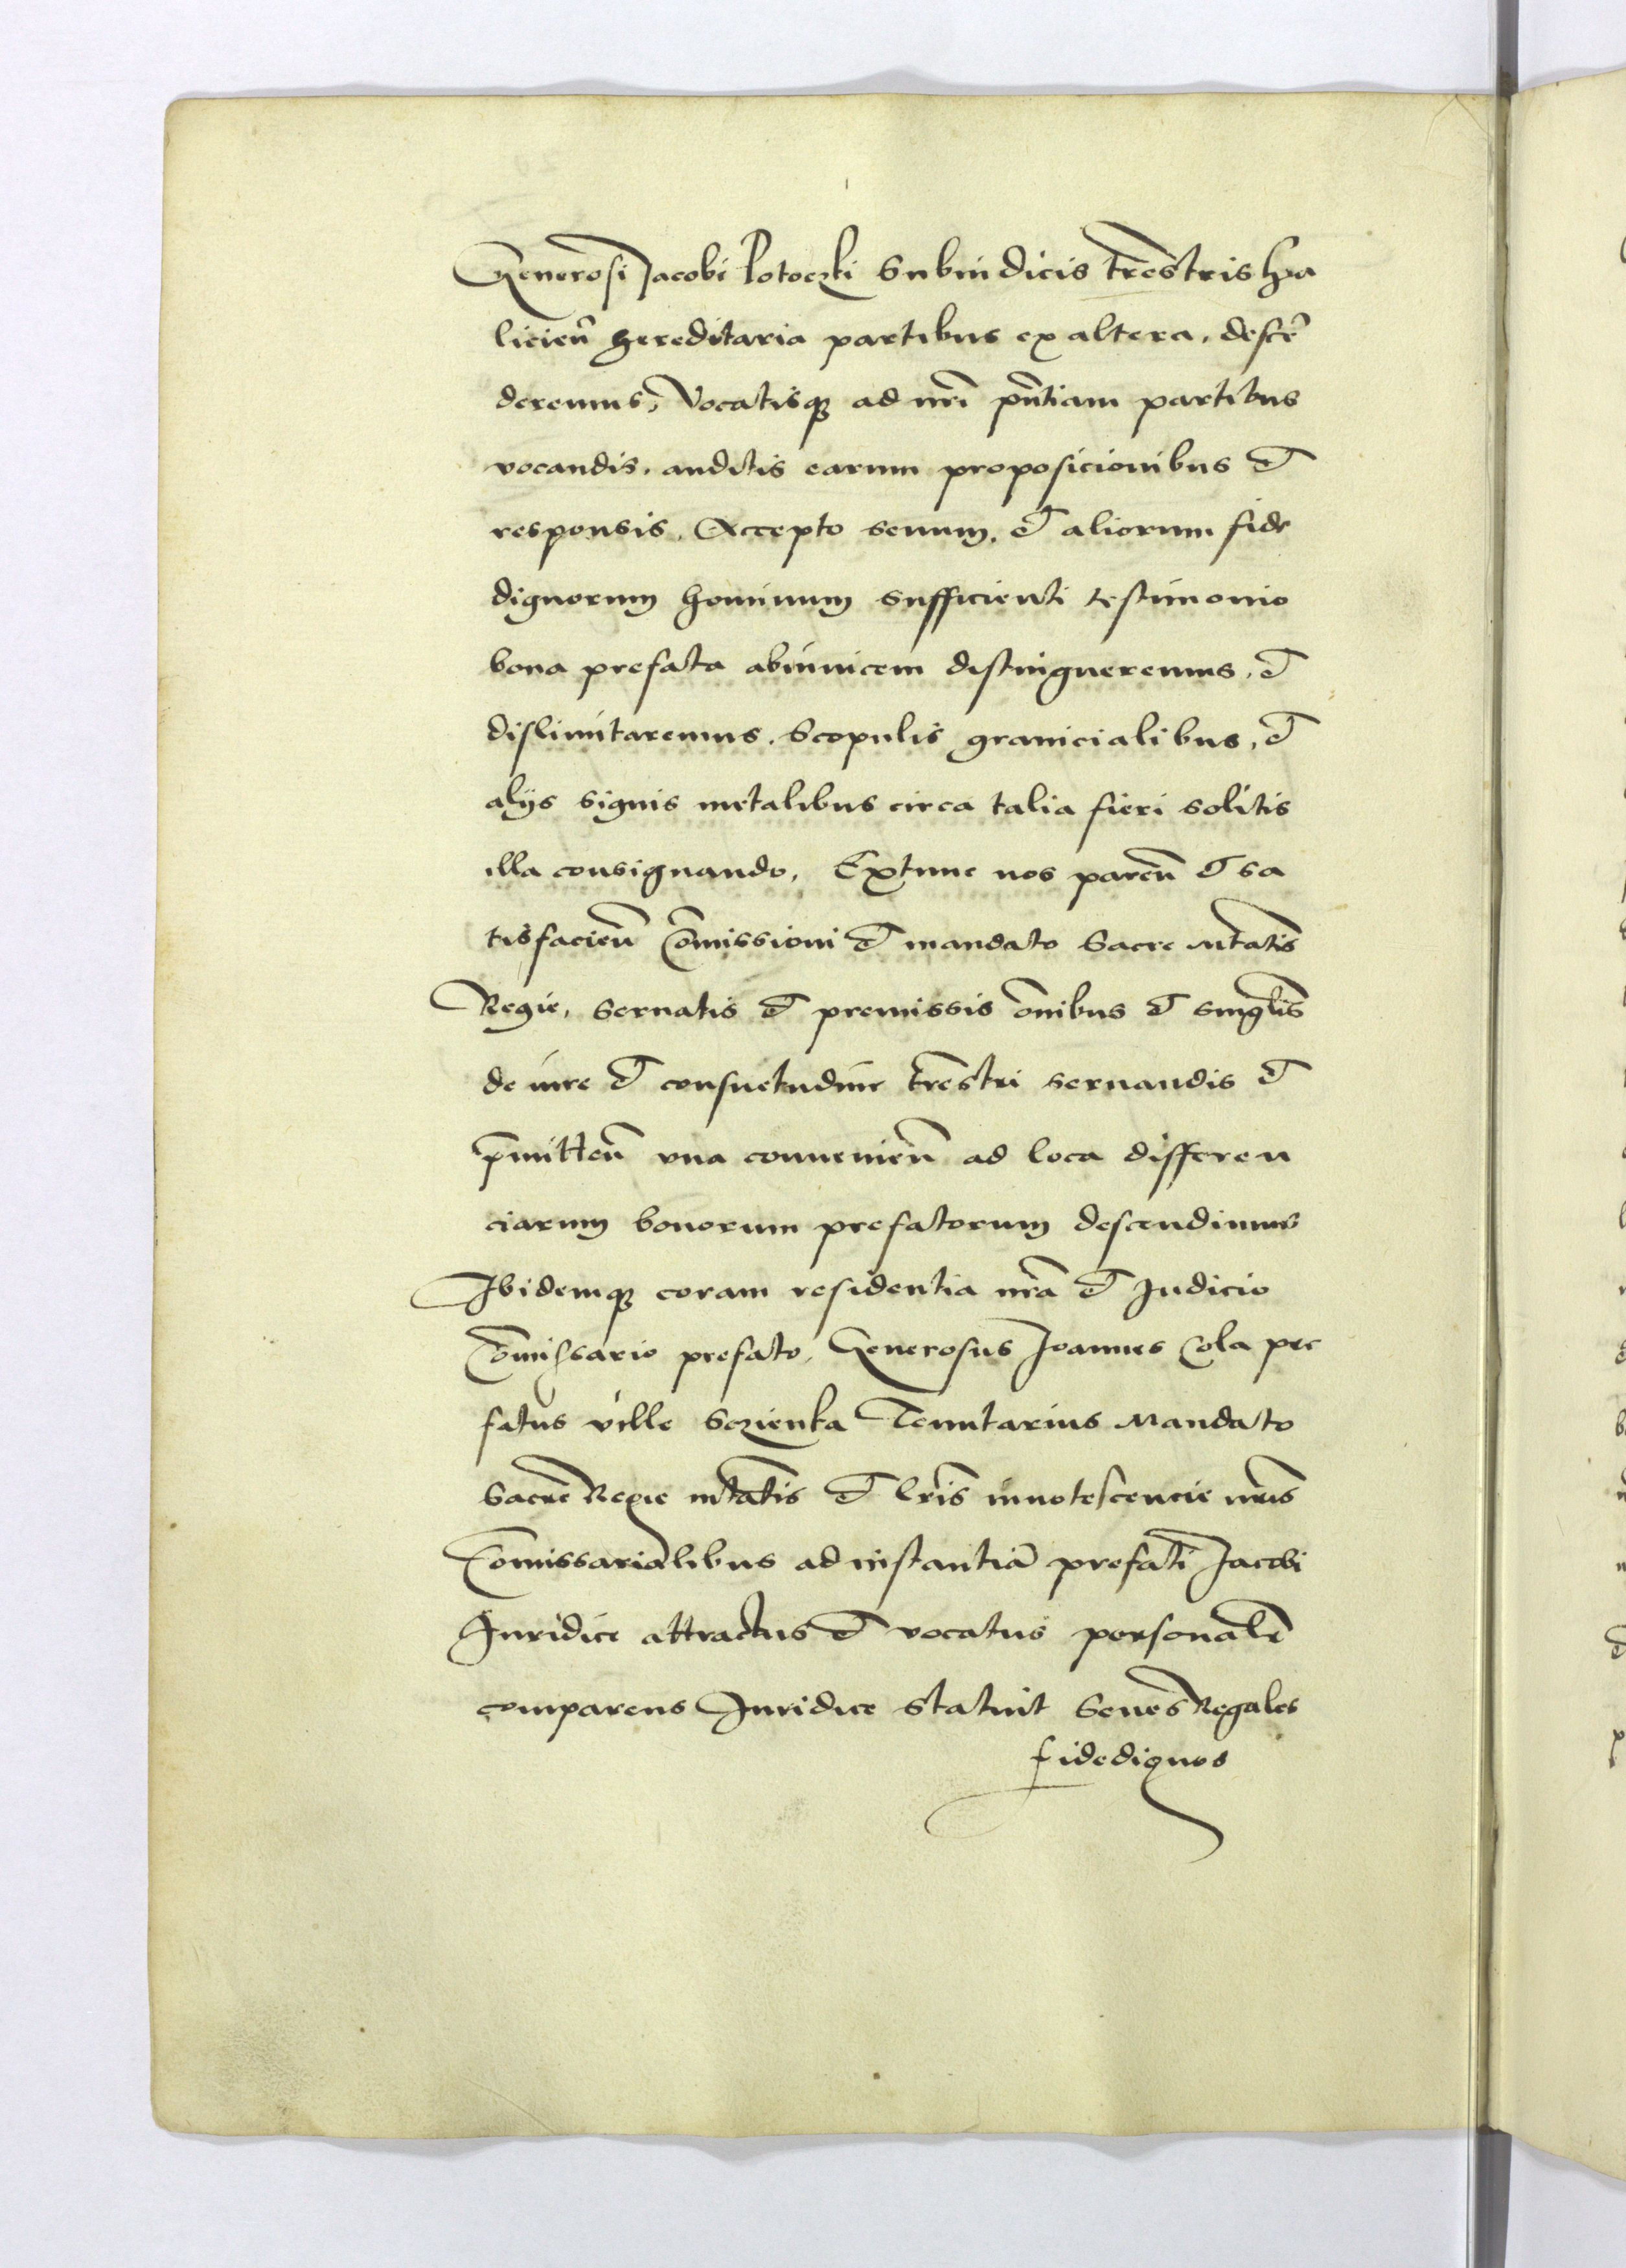 Generosi Jacobi Potoczki Subiudicis trēstris Ha
licień hereditaria partibus ex altera, descē
deremus, Vocatisq ad nr̄i pn̄tiam partibus
vocandis, auditis earum proposicionibus et
responsis, Accepto senum, et aliorum fide
dignorum hominum sufficienti testimonio
bona prefata abinvicem distingueremus, et
dislimitaremus, Scopulis granicialibus, et
alijs signis metalibus circa talia fieri solitis
illa consignando, Extunc nos pareń et sa
tisfacień Com̄issioni et mandato Sacre Mtatis
Regie, servatis et premissis om̄ibus et singlis
de iure et consuetudine trēstri servandis et
p̄mitteń una convenień ad loca differen
ciarum bonorum prefatorum descendimus
Ibidemq coram residentia nr̄a et Judicio
Com̄issario prefato, Generosus Joannes Cola pre
fatus ville Sczienka Tenutarius Mandato
Sacre Regie mtatis et lr̄is innotescencie nr̄is
Com̄issarialibus ad instantiā prefati Jacobi
Juridice attractus et vocatus personalē
comparens Juridice statuit Senes Regales
fidedignos